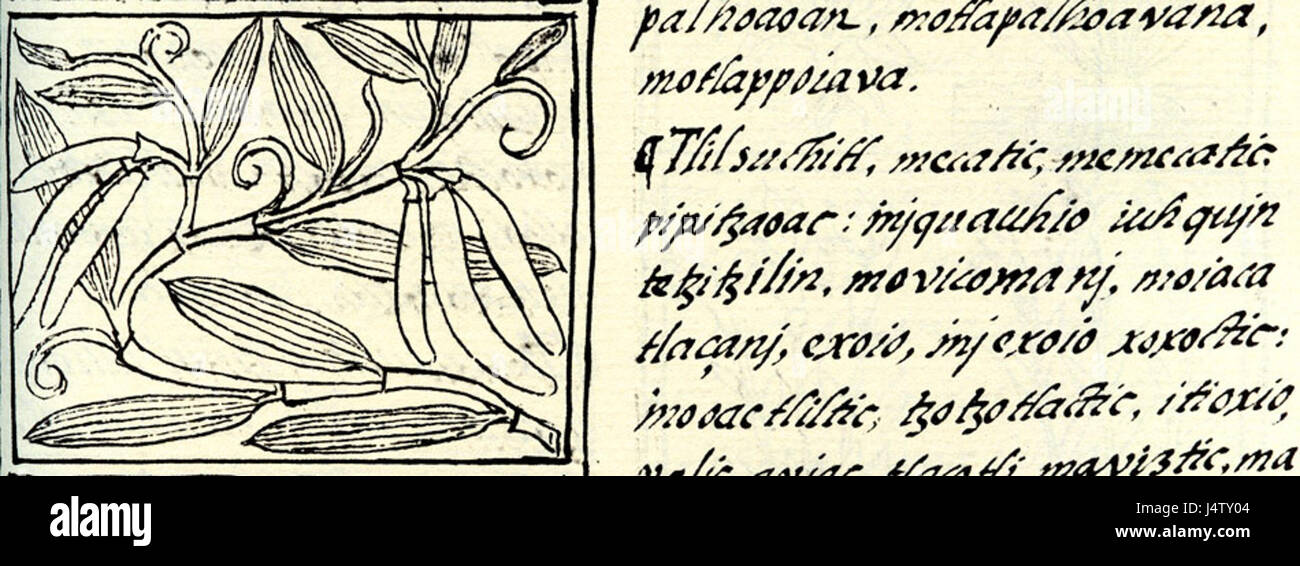 palhoaoan, motlapalhoavana,
motlappoiava.
¶Tlilsuchitl, mecatic, memecatic.
pipitzaoac: injquauhio iuhqujn
tetzitzilin, movicomanj, moiaca
tlaçanj, exoio, injexoio xoxoctic:
inooac tliltic, tzotzotlactic, itioxio,
alamy
alamy
Image ID: J4TY04
www.alamy.com